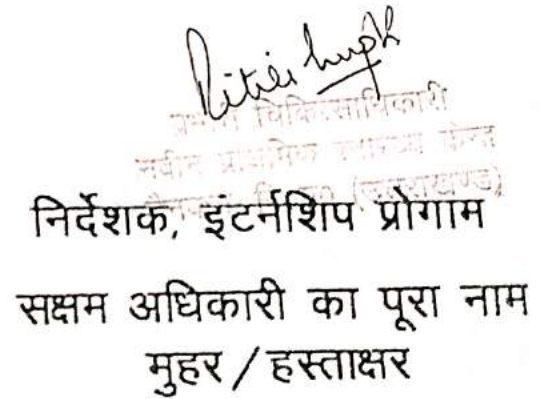 चिकित्साधिकारी
नवीन प्राथमिक स्वास्थ्य केन्द्र
(उत्तराखण्ड)
निर्देशक, इंटर्नशिप प्रोगाम
सक्षम अधिकारी का पूरा नाम
मुहर / हस्ताक्षर